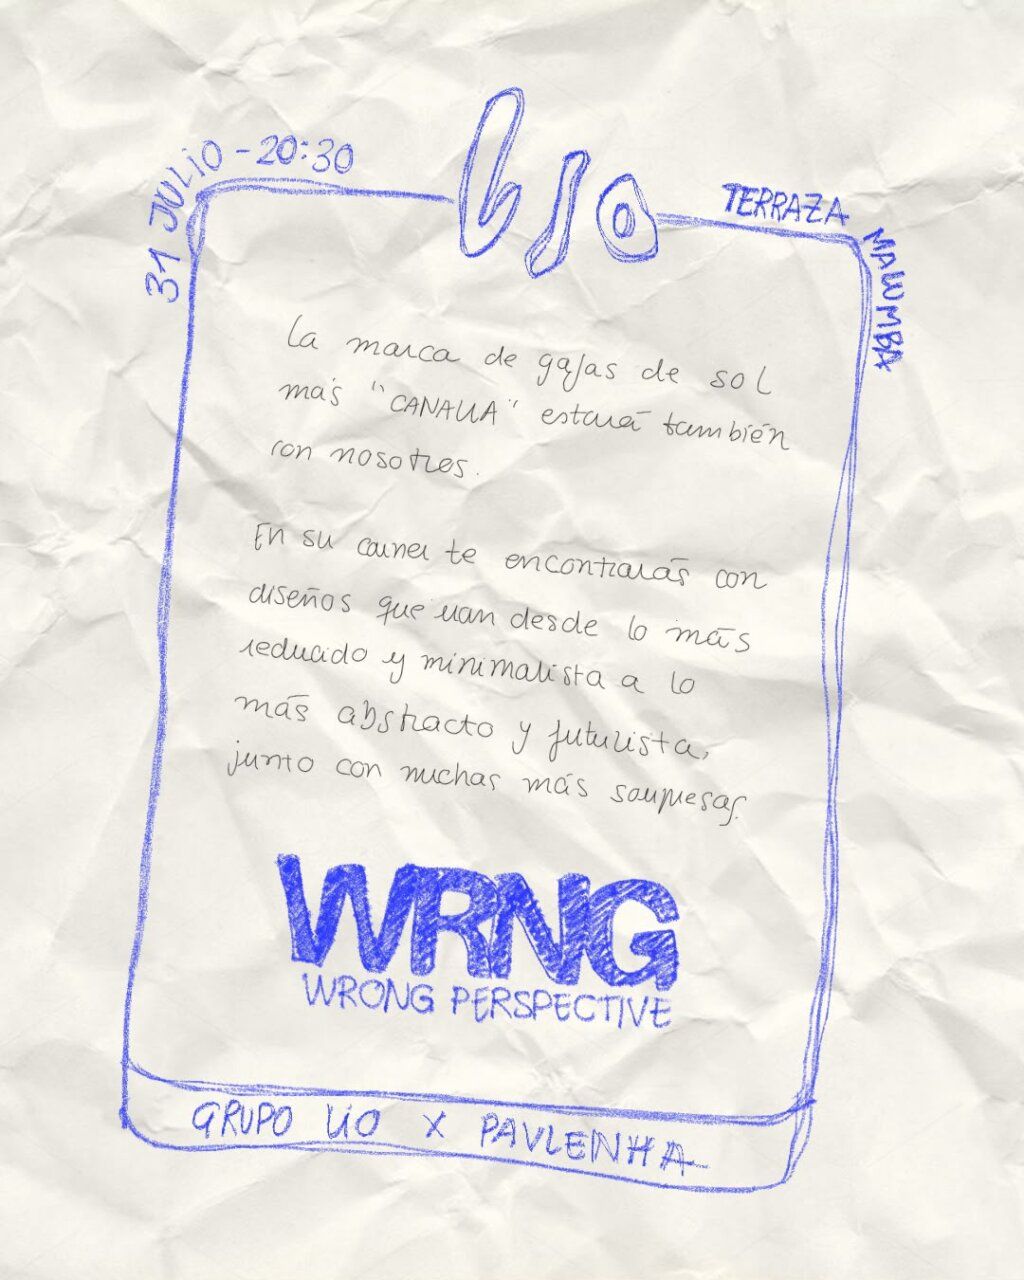 31 JULIO - 20:30
LIO
TERRAZA
MALUMBA
La marca de gafas de sol
más "CANALLA" estará también
con nosotros.
En su corner te encontrarás con
diseños que van desde lo más
reducido y minimalista a lo
más abstracto y futurista,
junto con muchas más sorpresas.
WRNG
WRONG PERSPECTIVE
GRUPO LIO X PAVLENHA